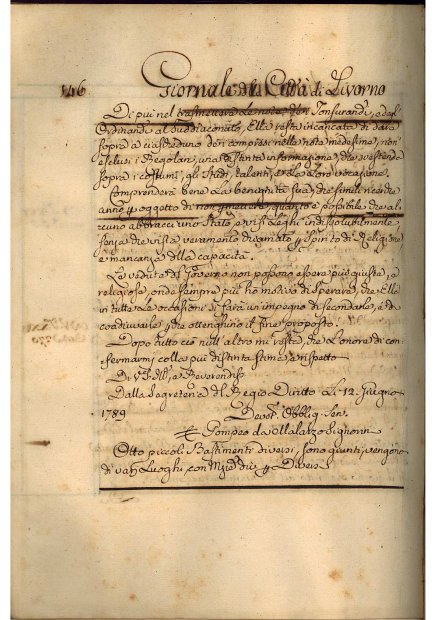 146 Giornale della Città di Livorno
Di più nel trasmettere le note dei Tonsurandi, e degl'
Ordinandi al suddiaconato, Ella resta incaricata di dare
sopra a ciascheduno dei compresi nelle note medesime, non
esclusi i Regolari, una distinta informazione, che si estenda
sopra i costumi, gli Studi, talenti, e la loro vocazione.
Comprenderà bene la benignità sua, che simili ricerche
anno per oggetto di non quanto è possibile, che al-
cuno abbracci uno Stato, e vi si leghi indissolubilmente
senza che vi sia veramente chiamato per Spirito di Religione
e mancanza della capacità.
Le vedute del Governo non possono essere più giuste, e
religiose, onde sempre più ho motivo di sperare, che Ella
in tutte le occasioni si farà un impegno di secondarle, e di
coadiuvarle, perche ottenghino il fine proposto.
Dopo tutto ciò null'altro mi resta, che l'onore di con-
fermarmi colla più distinta stima, e rispetto
Di V. S. Ill. e Reverendiss
Dalla Segreteria del Regio Diritto Li 12. Giugno
1789 Devot. Obblig. Serv.
Pompeo da Signorini
Otto piccoli Bastimenti diversi, sono giunti, vengono
di varj Luoghi, con per Diversi